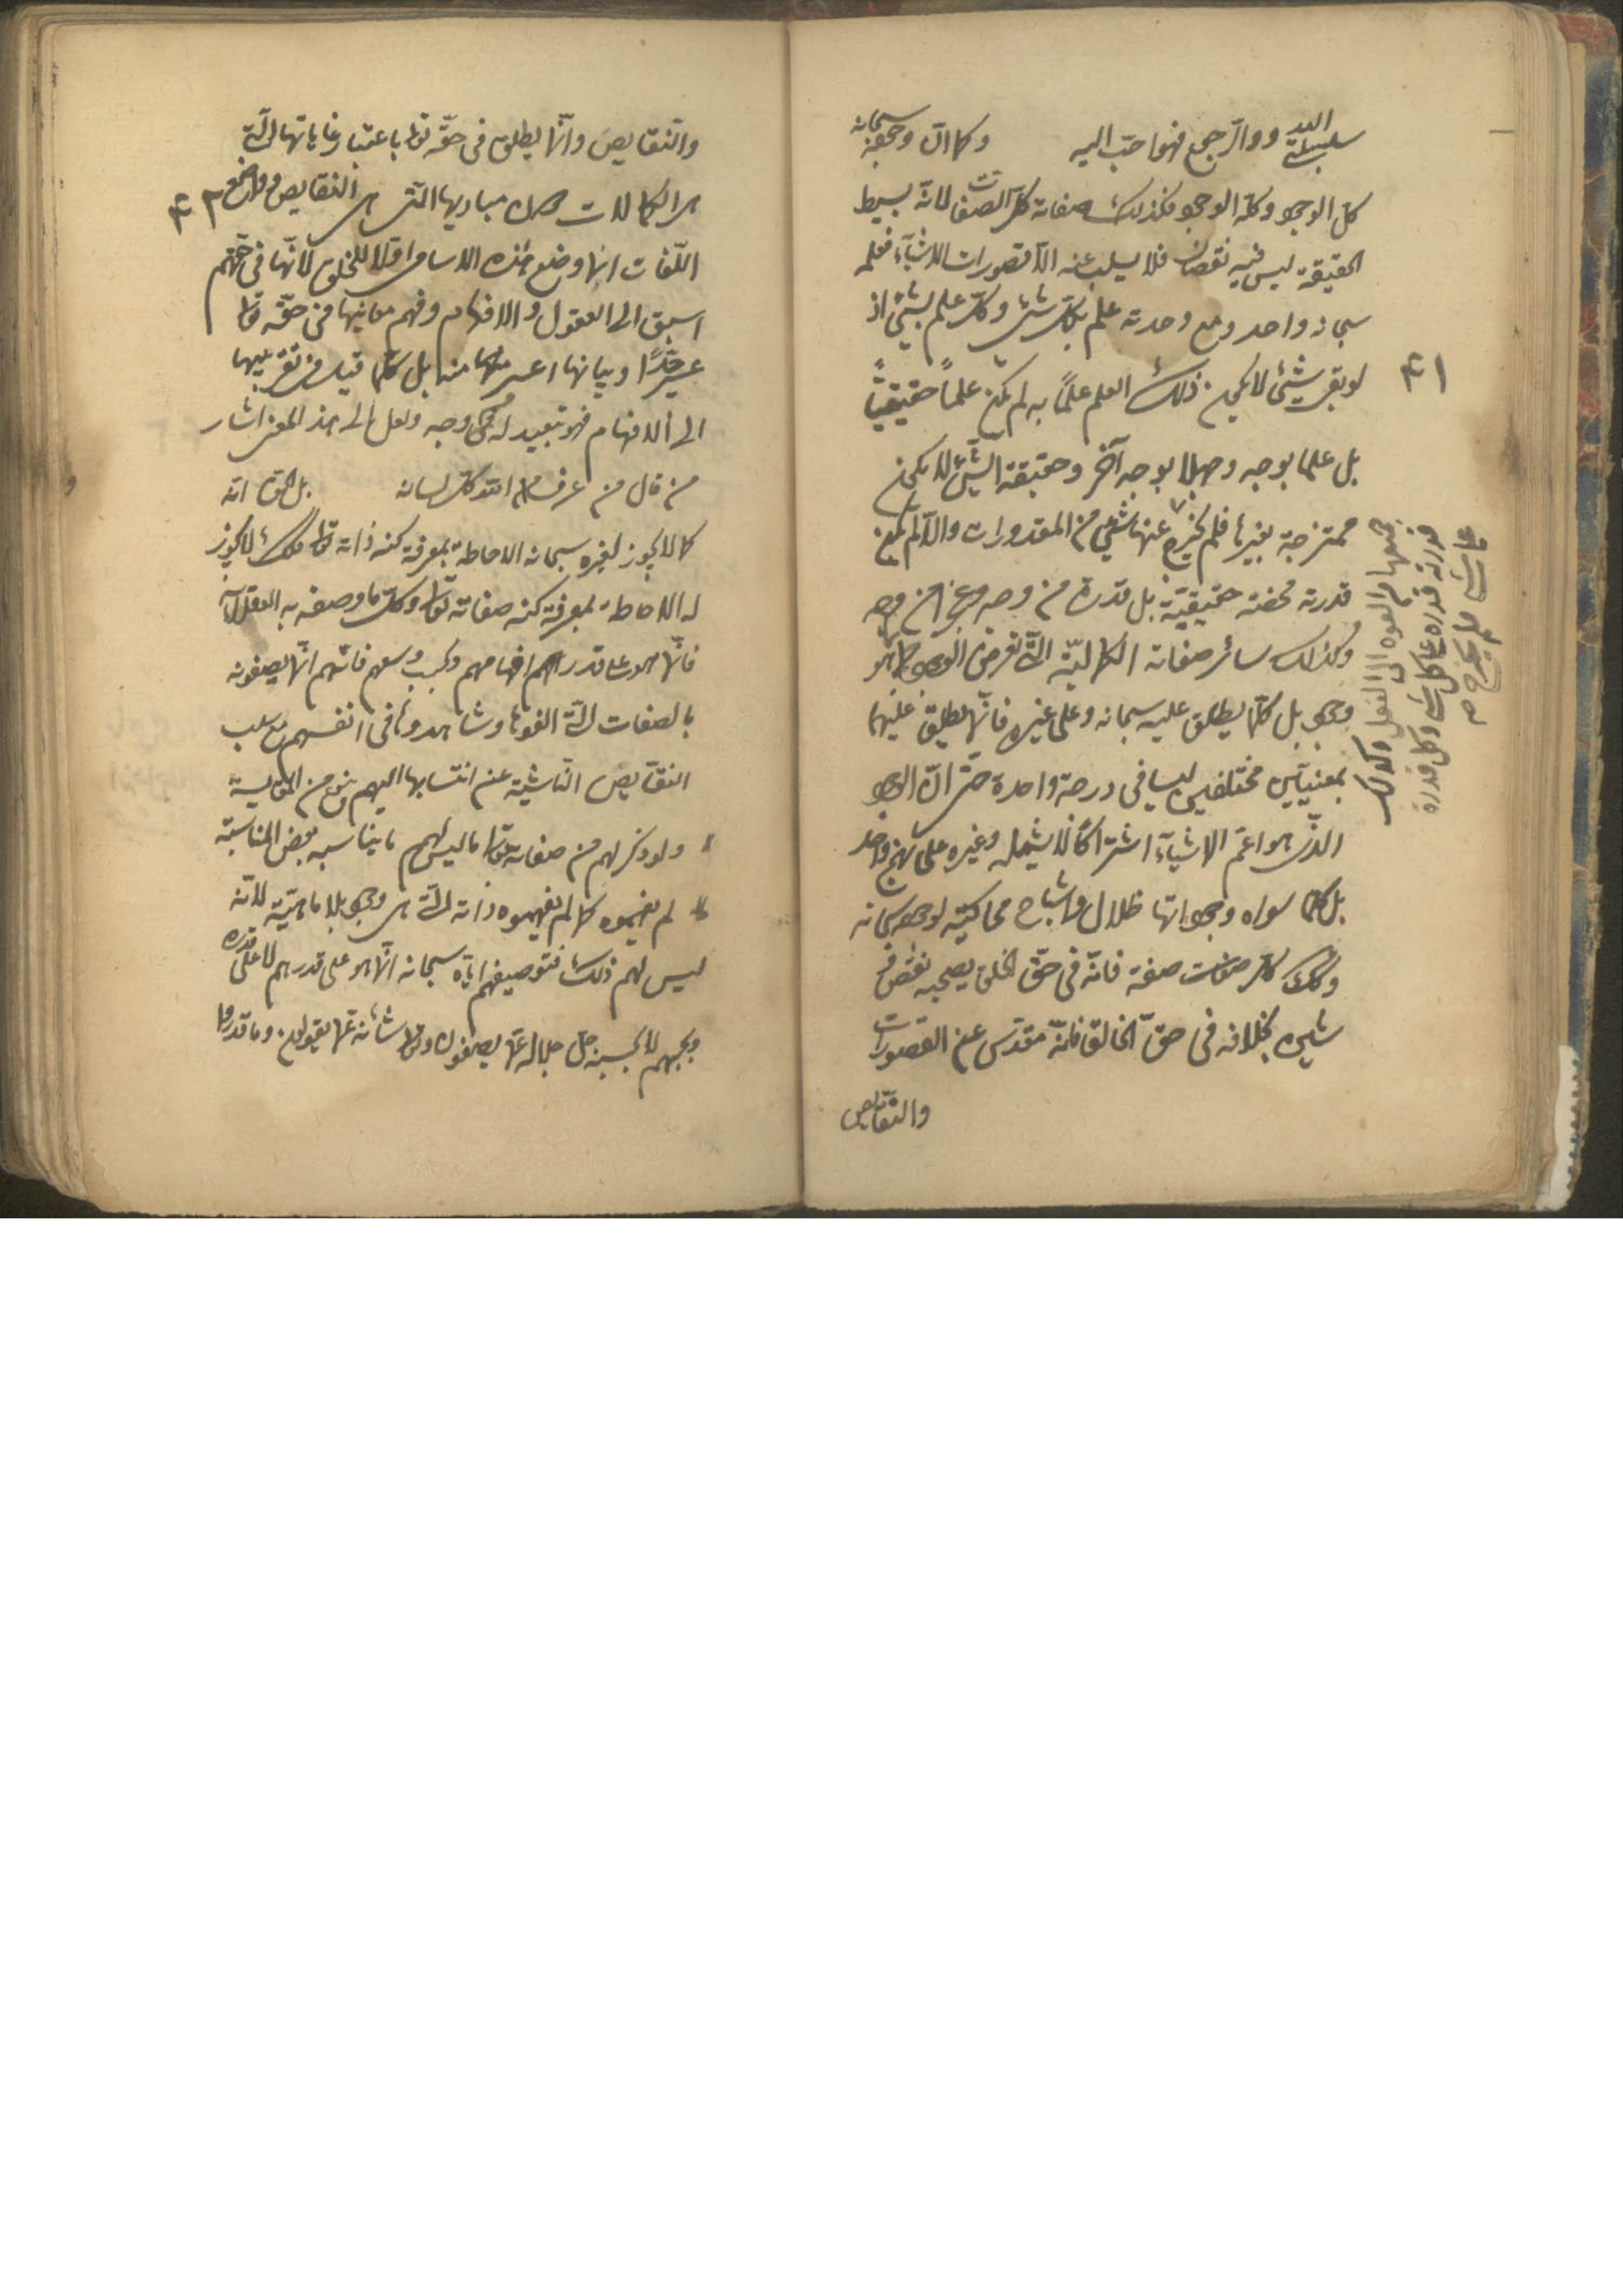 سلبية ووالرجمع فهو احب اليه وكما ان وجوده سبحانه
كل الوجود وكله الوجود فكذلك صفاته كل الصفات لانه بسيط
الحقيقة ليس فيه نقصان فلا يسلب عنه الا قصورات الاشياء فعلمه
سبحانه واحد ومع وحدته علم بكل شئ وكل علم بشئ اذ
٤١
لو بقى شئ لا يكون ذلك العلم علماً به لم يكن علماً حقيقياً
بل علما بوجه وجهلا بوجه آخر وحقيقة الشئ لا يكون
ممتزجة بغيرها فلم يخرج عنها شئ من المقدورات والا لم يكن
قدرته محضة حقيقية بل قدرة من وجه وعجز من وجه
وكذلك سائر صفاته الكمالية التى تعرض الوجود بما هو
وجود بل كلما يطلق عليه سبحانه وعلى غيره فانما يطلق عليهما
بمعنيين مختلفين ليسا فى درجة واحدة حتى ان الوجود
الذى هو اعم الاشياء اشتراكاً لا يشمله وغيره على نهج واحد
بل كلما سواه وجوداتها ظلال واشباح محاكية لوجوده سبحانه
وكذلك كل صفة صفة فانه فى حق الخلق يصحبه نقص و
شين بخلافه فى حق الخالق فانه مقدس عن القصورات
والنقايص
جميعها من القوة الى الفعل وكذلك
قدرته قدرة على كل شئ وكل قدرة
على شئ
والنقايص وانما يطلق فى حقه تعالى باعتبار غاياتها التى
هى الكمالات دون مباديها التى هى النقايص وواضع
٤٢
اللغات انما وضع هذه الاسامى اولا للخلق لانها فى حقهم
اسبق الى العقول والافهام وفهم معانيها فى حقه تعالى
عسر جداً وبيانها اعسر منها منه بل كلما قيل فى تقريبها
الى الافهام فهو تبعيد له من وجه ولعل الى هذا المعنى اشار
من قال من عرف الله كل لسانه بل الحق انه
كما لا يجوز لغيره سبحانه الاحاطة بمعرفة كنه ذاته تعالى فكذلك لا يجوز
له الاحاطة بمعرفة كنه صفاته تعالى وكل ما وصفه به العقلاء
فانما هو على قدر افهامهم وبحسب وسعهم فانهم انما يصفونه
بالصفات التى الفوها وشاهدوها فى انفسهم مع سلب
النقايص الناشية عن انتسابها اليهم بنوع من المقايسة
ولو ذكر لهم من صفاته تعالى ما ليس لهم ما يناسبه بعض المناسبة
لم يفهموه كما لم يفهموه ذاته التى هى وجود بلا ماهية لانه
ليس لهم ذلك فتوصيفهم اياه سبحانه انما هو على قدرهم لا على قدره
وبحسبهم لا بحسبه جل جلاله عما يصفون وتعالى شانه عما يقولون وما قدروا